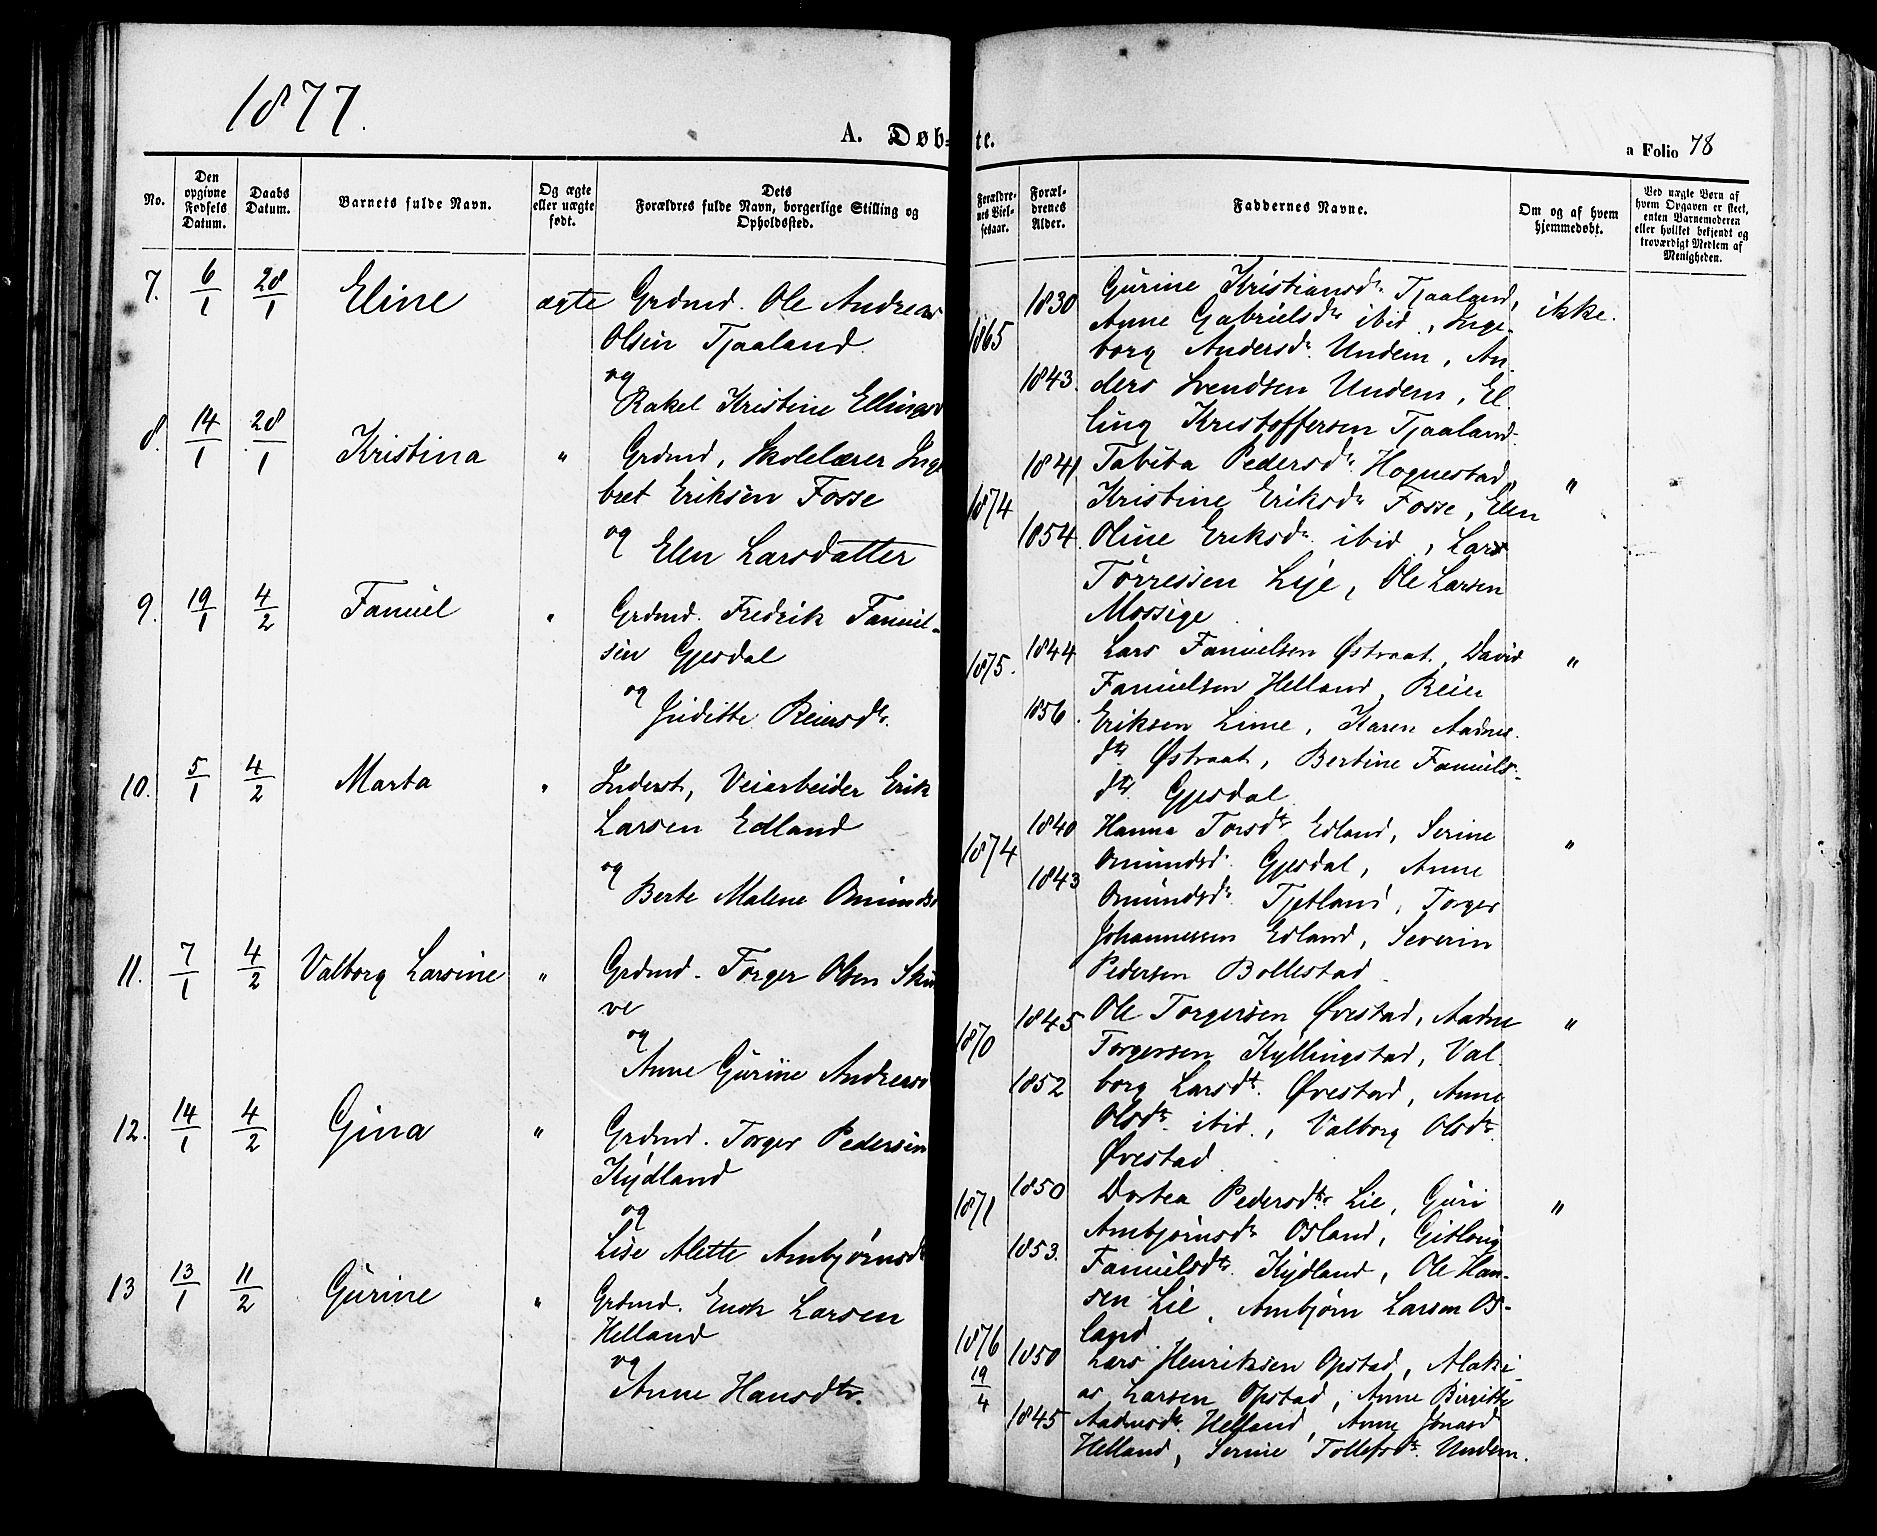 1877.
A. Døb-
te.
a Folio 78
No.
Den opgivne Fødsels Datum.
Daabs Datum.
Barnets fulde Navn.
Og ægte eller uægte født.
Dets Forældres fulde Navn, borgerlige Stilling og Opholdssted.
Forældre-nes Viel-sesaar.
Foræl-drenes Alder.
Faddernes Navne.
Om og af hvem hjemmedøbt.
Ved uægte Børn af hvem Opgaven er skeet, enten Barnemoderen eller hvilket bekjendt og troværdigt Medlem af Menigheden.
7. 6/1 28/1 Eline ægte Grdmd. Ole Andreas
Olsen Tjaaland
og
Rakel Kristine Ellingsd
1865
1830
1843.
Gurine Kristiansdr. Tjaaland,
Anne Gabrielsdr ibid, Inge-
borg Andersdr. Undem, An-
ders Svendsen Undem, El-
ling Kristoffersen Tjaaland.
ikke.
8. 14/1 28/1 Kristina " Grdmd, Skolelærer Inge
bret Eriksen Fosse
og
Elen Larsdatter
1874
1841
1854.
Tabita Pedersdr. Hognestad,
Kristine Eriksdr Fosse, Elen
Oline Eriksdr. ibid, Lars
Tørressen Lye, Ole Larsen
Mossige
"
9. 19/1 4/2 Fanuel " Grdmd. Fredrik Fanuel-
sen Gjesdal
og
Juditte Reiersdtr.
1875.
1844
1856.
Lars Fanuelsen Østraat, David
Fanuelsen Helland, Reier
Eriksen Lime, Karen Aadnes-
dtr Østraat, Bertine Fanuels-
dtr. Gjesdal
"
10. 5/1 4/2 Marta " Inderst, Veiarbeider Erik
Larsen Edland
og
Berte Malene Omundsd
1874
1840
1843
Hanna Torsdtr Edland, Serine
Omundsd. Gjesdal, Anne
Omundsdr. Tjetland, Torger
Johannessen Edland, Severin
Pedersen Bollestad
"
11. 7/1 4/2 Valborg Larsine " Grdmd. Torger Olsen Sku
ve
og
Anne Gurine Andreasd
1870
1845
1852
Ole Torgersen Øvestad, Aadne
Torgersen Kyllingstad, Val-
borg Larsdt. Øvestad, Anne
Olsdr. ibid., Valborg Olsdr.
Øvestad
"
12. 14/1 4/2 Gina " Grdmd. Torger Pedersen
Kydland
og
Lise Alette Ambjørnsdt
1871
1850
1853.
Dortea Pedersdtr Lie, Guri
Ambjørnsdr Osland, Gitlaug
Fanuelsdtr. Kydland, Ole Han-
sen Lie, Ambjørn Larsen Os-
land
"
13 13/1 11/2 Gurine " Grdmd. Enok Larsen
Helland
og
Anne Hansdtr.
1876
19/4
1850
1845
Lars Henriksen Opstad, Malaki-
as Larsen Opstad, Anne Birgitte
Aadnesdr. Helland, Anne Jonasd
Helland, Serine Tollefsdtr. Undem.